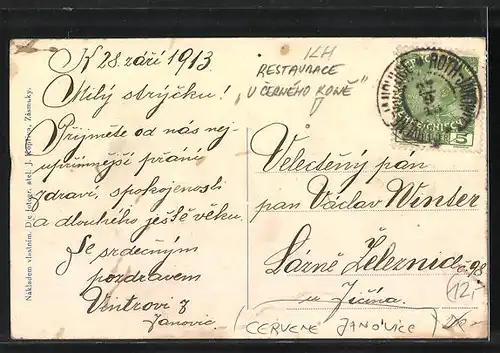 K 28. září 1913
Milý strýčku!
Přijměte od nás nej-
upřímnější přání
zdraví, spokojenosti
a dlouhého ještě věku.
Se srdečným
pozdravem
Vintrovi z
Janovic
Nákladem vlastním. Die fotogr. atel. J. Kopřiva, Zásmuky.
RESTAURACE
„U ČERNÉHO KONĚ"
Velectěný pán
pan Václav Winter
Lázně Železnice č. 98
u Jičína.
(ČERVENÉ JANOVICE)
12,-
5